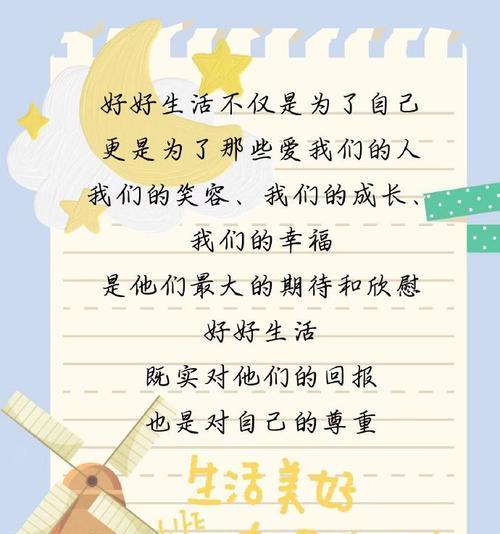 好好生活不仅是为了自己
更是为了那些爱我们的人
我们的笑容、我们的成长、
我们的幸福
是他们最大的期待和欣慰
好好生活
既实对他们的回报
也是对自己的尊重
生活美好
LIFE